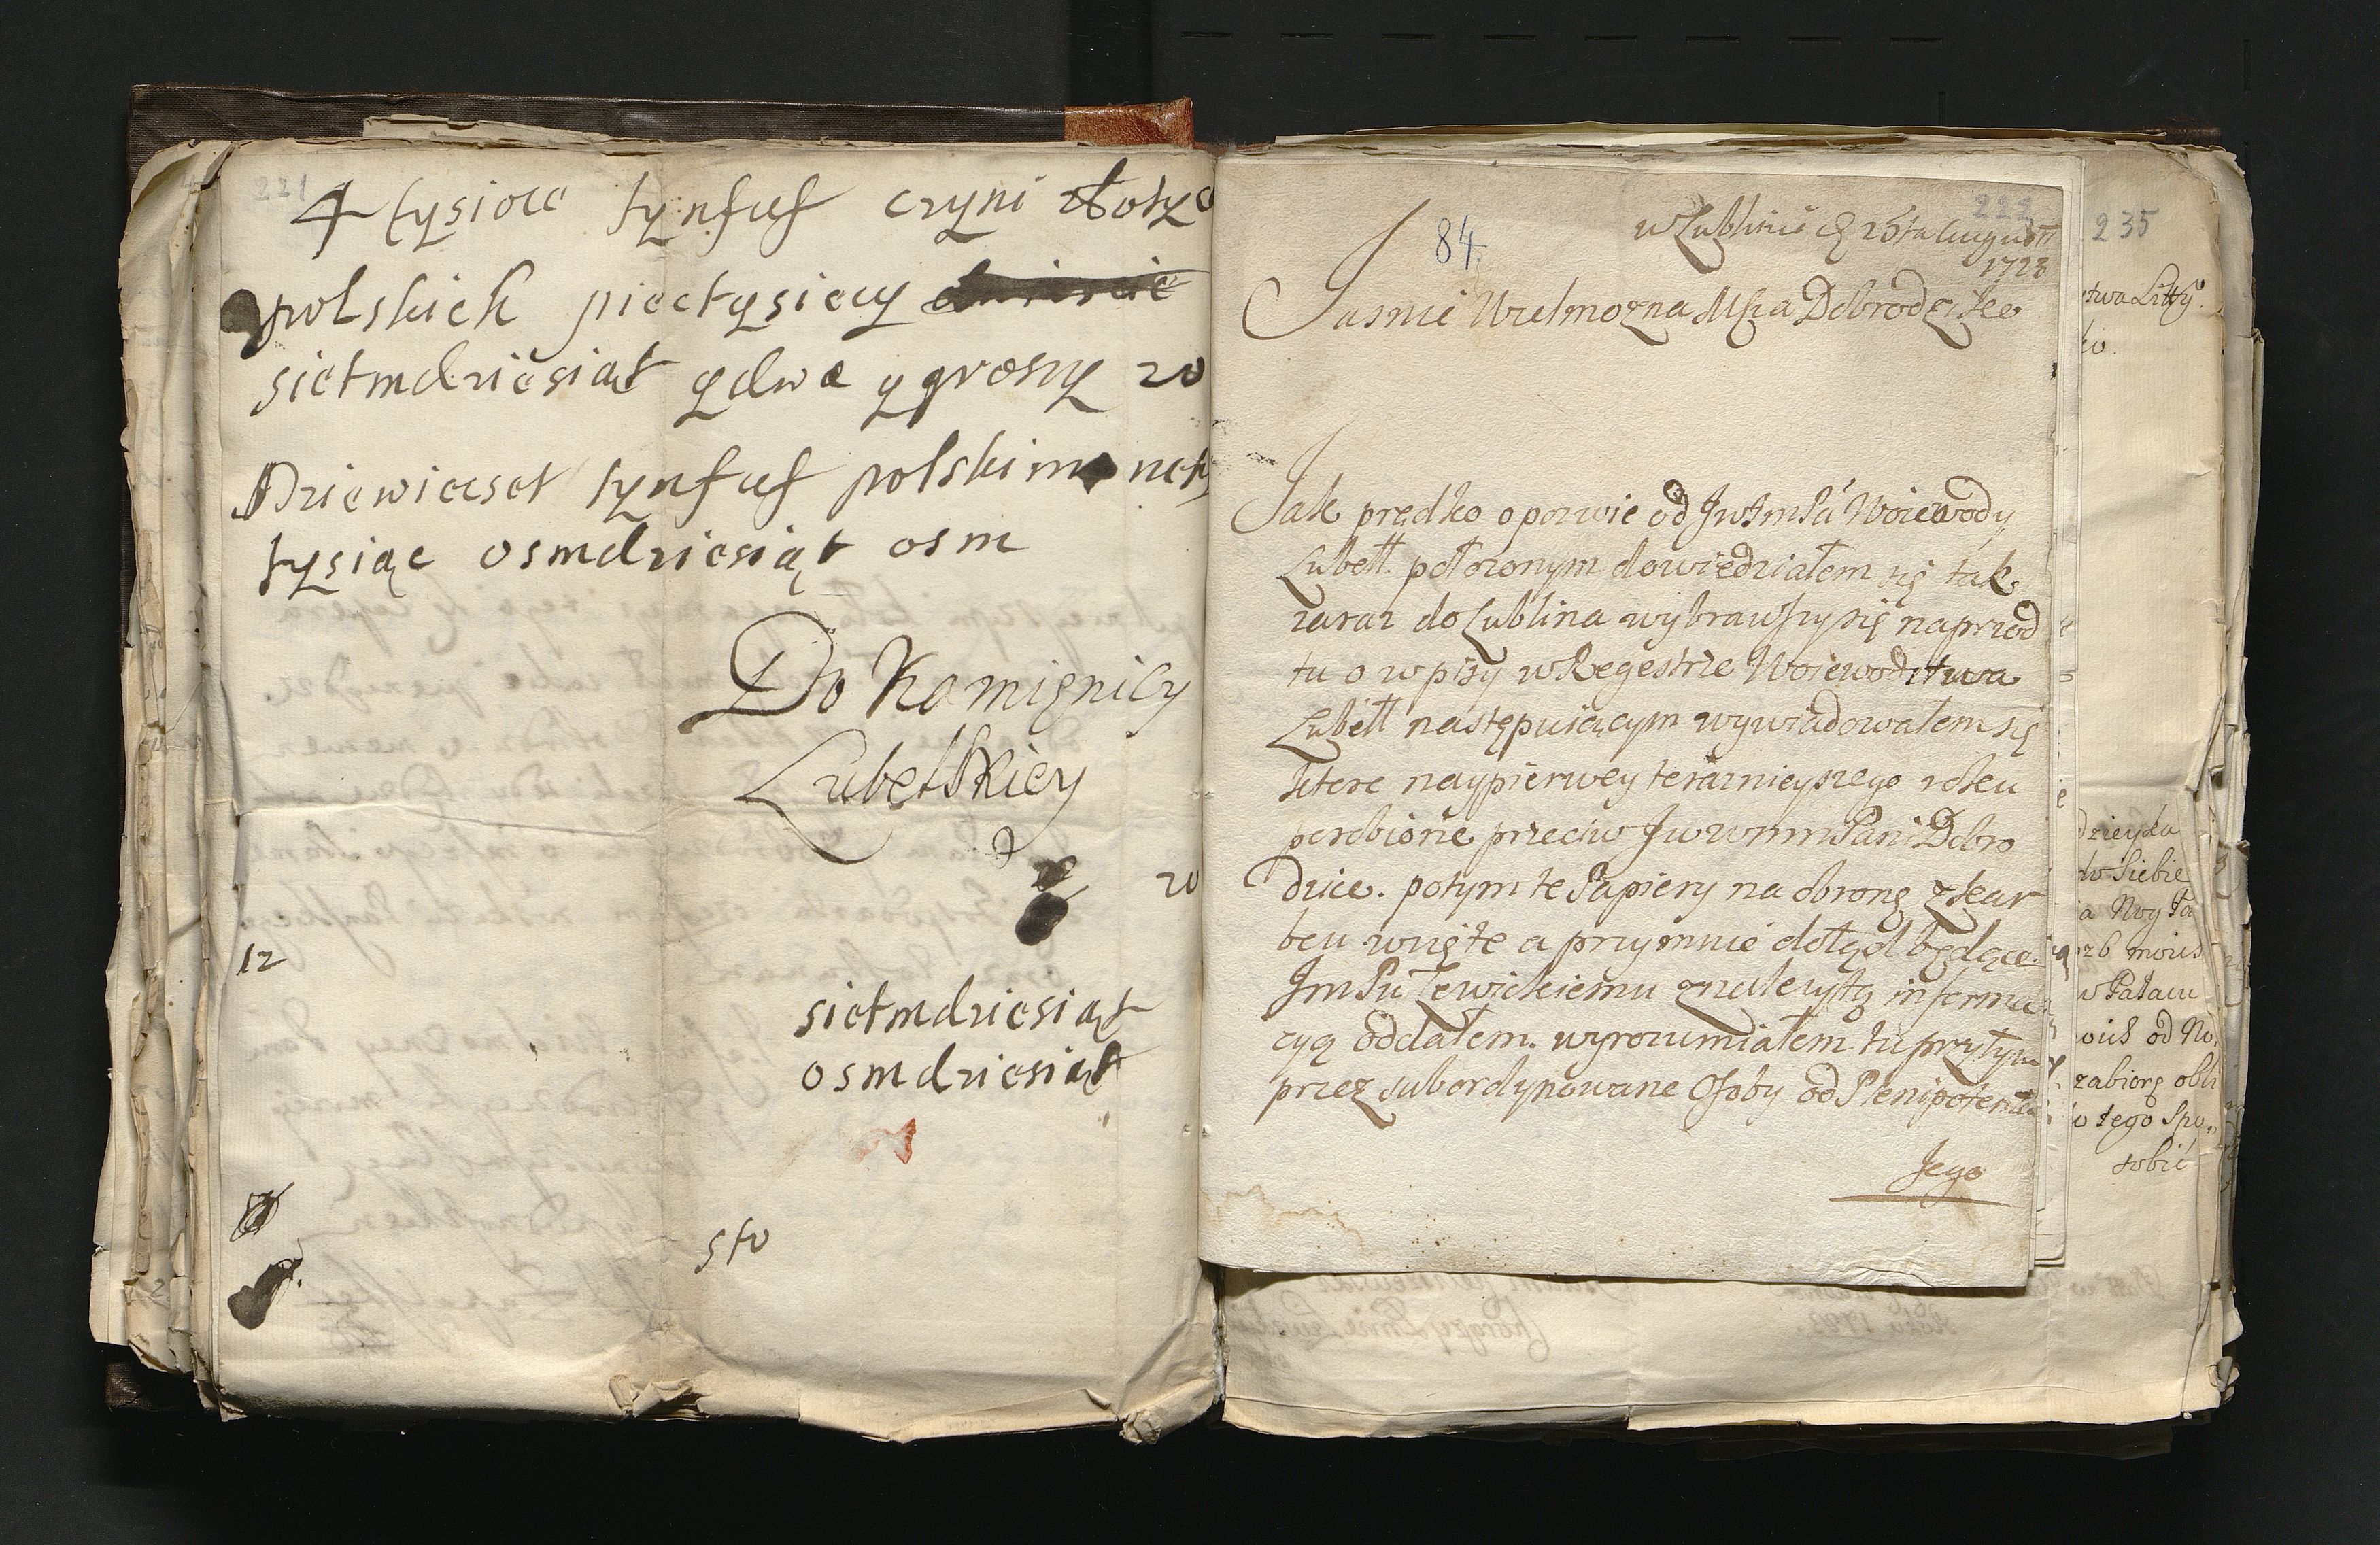 221
4 tysiące tynfuf czyni złotyc
polskich piectysiecy
sietmdziesiąt y dwa y groszy 20
Dziewiecset tynfuf polskim
tysiąc osmdziesiąt osm
Do Kamięnicy
Lubelskiey
20
12
sietmdziesiąt
osmdziesiąt
sto
222
84
w Lublinie 25ta Augusti
1728
Jasnie Wielmozna Msia Dobrodziko
Jak prędko o pozwie od JwJmPa Woiewody
Lubell. położonym dowiedziałem się tak
zaraz do Lublina wybrawszy się naprzod
tu o wpisy w Regestrze Woiewodztwa
Lubell następuiącym wywiadowałem się
ktore naypierwey teraznieyszego roku
porobione przeciw Jwwmm Pani Dobro
dzice. potym te Papiery na obronę z skar
bcu wzięte a przy mnie dotąd będące
JmPu Lewickiemu z należytą informa
cyą oddałem. wyrozumiałem tu przytym
przez subordynowane Osoby od Plenipotenta
Jego
235
twa Litty.
ko.
dzieyka
dw Siebie
ia Moy Pa
w Pałacu
od No
zabiorę obli
o tego Spo
sobić